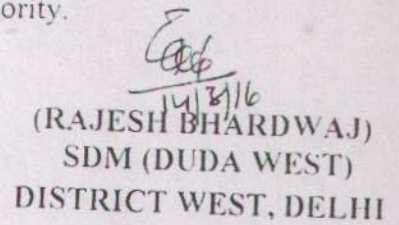 ority.
14/3/16
(RAJESH BHARDWAJ)
SDM (DUDA WEST)
DISTRICT WEST, DELHI